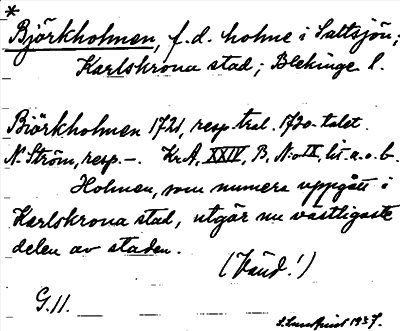 *
Björkholmen, f.d. holme i Saltsjön;
Karlskrona stad; Blekinge l.
Biörkholmen 1721, resp. trol. 1720-talet.
N. Ström, resp. –. Kr.A, XXIV, B, N:o IX, lit. a. o. b.
Holmen, som numera uppgått i
Karlskrona stad, utgör nu västligaste
delen av staden.
(Vänd!)
G.11.
S. Lundquist 1937.